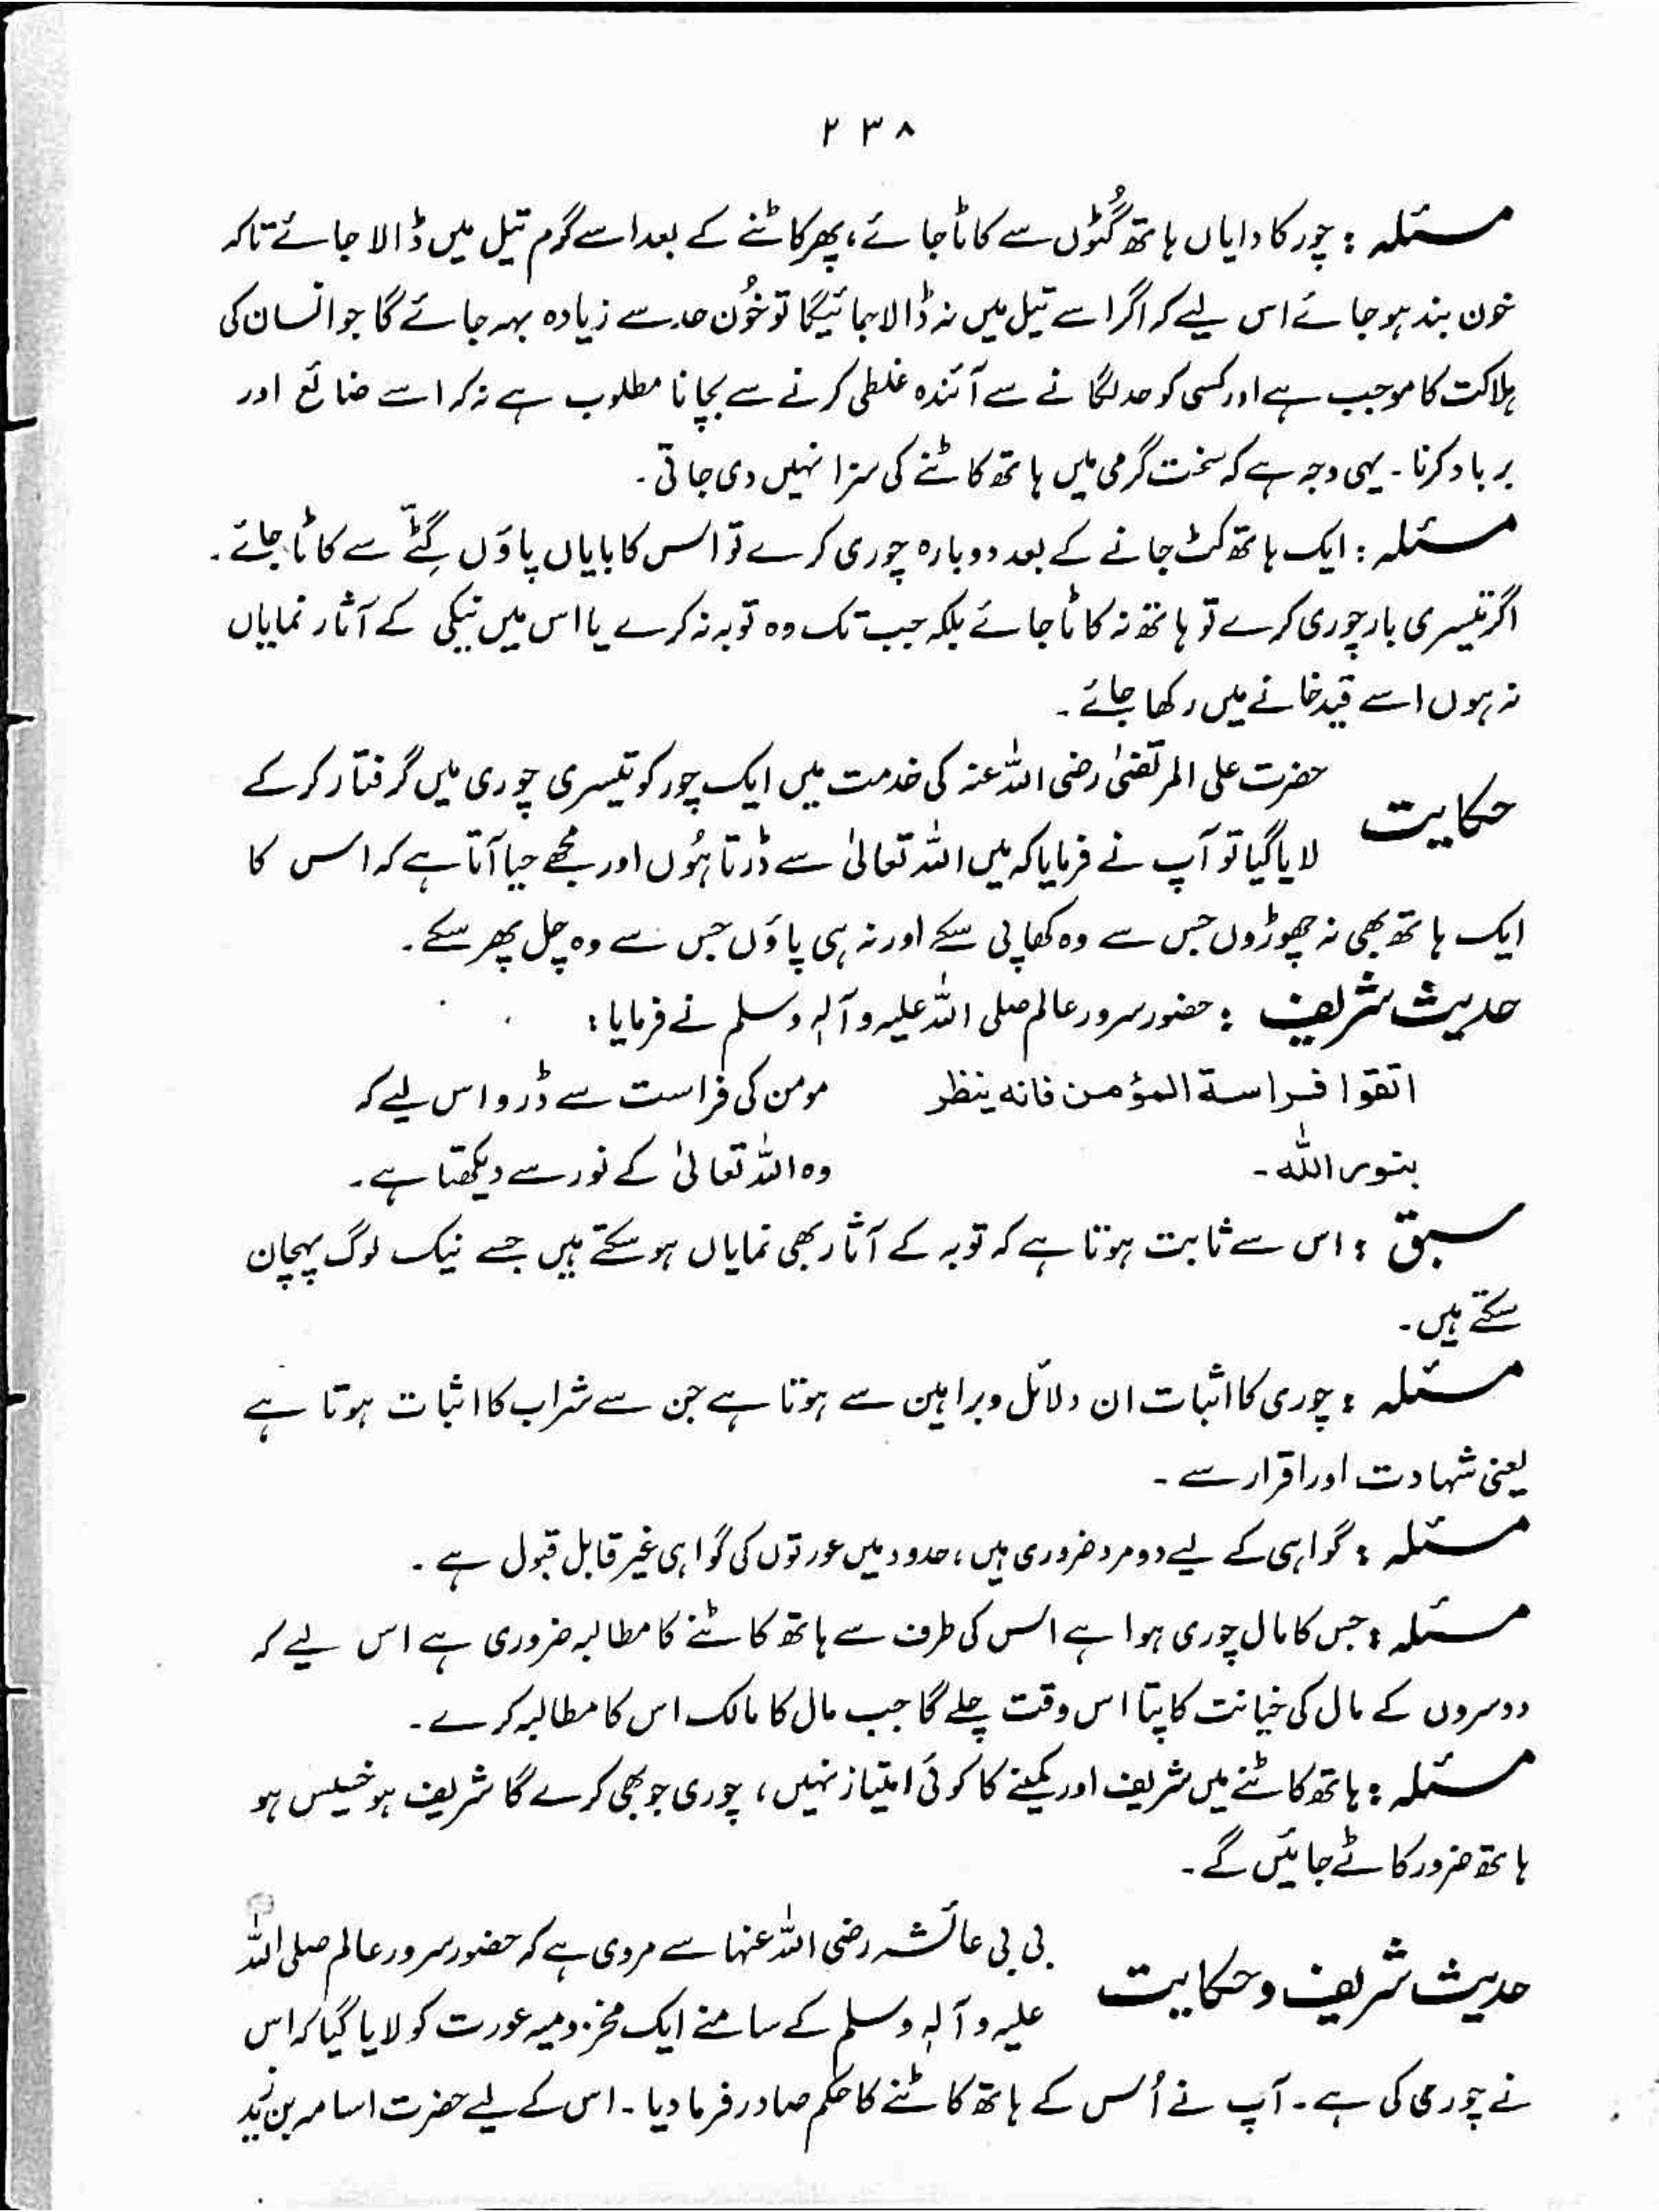 ۲۳۸
مسئلہ : چور کا دایاں ہاتھ گُٹوں سے کاٹا جائے، پھر کاٹنے کے بعد اسے گرم تیل میں ڈالا جائے تاکہ
خون بند ہو جائے اس لیے کہ اگر اسے تیل میں نہ ڈالا جائیگا تو خُون حد سے زیادہ بہہ جائے گا جو انسان کی
ہلاکت کا موجب ہے اور کسی کو حد لگانے سے آئندہ غلطی کرنے سے بچانا مطلوب ہے نہ کہ اسے ضائع اور
برباد کرنا ۔ یہی وجہ ہے کہ سخت گرمی میں ہاتھ کاٹنے کی سزا نہیں دی جاتی ۔
مسئلہ : ایک ہاتھ کٹ جانے کے بعد دوبارہ چوری کرے تو اس کا بایاں پاؤں گِٹّے سے کاٹا جائے ۔
اگر تیسری بار چوری کرے تو ہاتھ نہ کاٹا جائے بلکہ جب تک وہ توبہ نہ کرے یا اس میں نیکی کے آثار نمایاں
نہ ہوں اسے قید خانے میں رکھا جائے ۔
حکایت
حضرت علی المرتضیٰ رضی اللہ عنہ کی خدمت میں ایک چور کو تیسری چوری میں گرفتار کر کے
لایا گیا تو آپ نے فرمایا کہ میں اللہ تعالیٰ سے ڈرتا ہُوں اور مجھے حیا آتا ہے کہ اس کا
ایک ہاتھ بھی نہ چھوڑوں جس سے وہ کھا پی سکے اور نہ ہی پاؤں جس سے وہ چل پھر سکے ۔
حدیث شریف : حضور سرور عالم صلی اللہ علیہ و آلہٖ وسلم نے فرمایا :
اتقوا فراسة المؤمن فانه ینظر مومن کی فراست سے ڈرو اس لیے کہ
بنور الله ۔ وہ اللہ تعالیٰ کے نور سے دیکھتا ہے ۔
سبق : اس سے ثابت ہوتا ہے کہ توبہ کے آثار بھی نمایاں ہو سکتے ہیں جسے نیک لوگ پہچان
سکتے ہیں ۔
مسئلہ : چوری کا اثبات ان دلائل و براہین سے ہوتا ہے جن سے شراب کا اثبات ہوتا ہے
یعنی شہادت اور اقرار سے ۔
مسئلہ : گواہی کے لیے دو مرد ضروری ہیں، حدود میں عورتوں کی گواہی غیر قابل قبول ہے ۔
مسئلہ : جس کا مال چوری ہوا ہے اس کی طرف سے ہاتھ کاٹنے کا مطالبہ ضروری ہے اس لیے کہ
دوسروں کے مال کی خیانت کا پتا اس وقت چلے گا جب مال کا مالک اس کا مطالبہ کرے ۔
مسئلہ : ہاتھ کاٹنے میں شریف اور کمینے کا کوئی امتیاز نہیں ، چوری جو بھی کرے گا شریف ہو خسیس ہو
ہاتھ ضرور کاٹے جائیں گے ۔
حدیث شریف و حکایت
بی بی عائشہ رضی اللہ عنہا سے مروی ہے کہ حضور سرور عالم صلی اللہ
علیہ و آلہٖ وسلم کے سامنے ایک مخزومیہ عورت کو لایا گیا کہ اس
نے چوری کی ہے ۔ آپ نے اُس کے ہاتھ کاٹنے کا حکم صادر فرما دیا ۔ اس کے لیے حضرت اسامہ بن زید